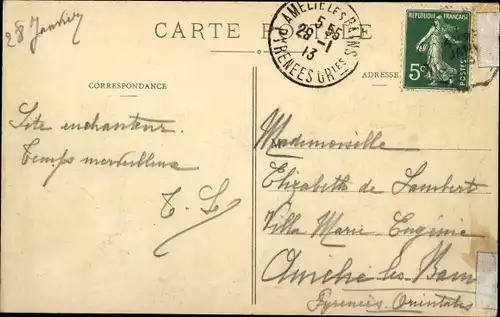 28 Janvier
CARTE POSTALE
AMELIE LES BAINS
5 55
28 -1
13
PYRENEES ORIES
REPUBLIQUE FRANÇAISE
5c
POSTES
CORRESPONDANCE
ADRESSE
Site enchanteur.
Temps merveilleux
M
Mademoiselle
Elizabeth de Lambert
Villa Marie Eugénie
Amélie les Bains
Pyrénées Orientales